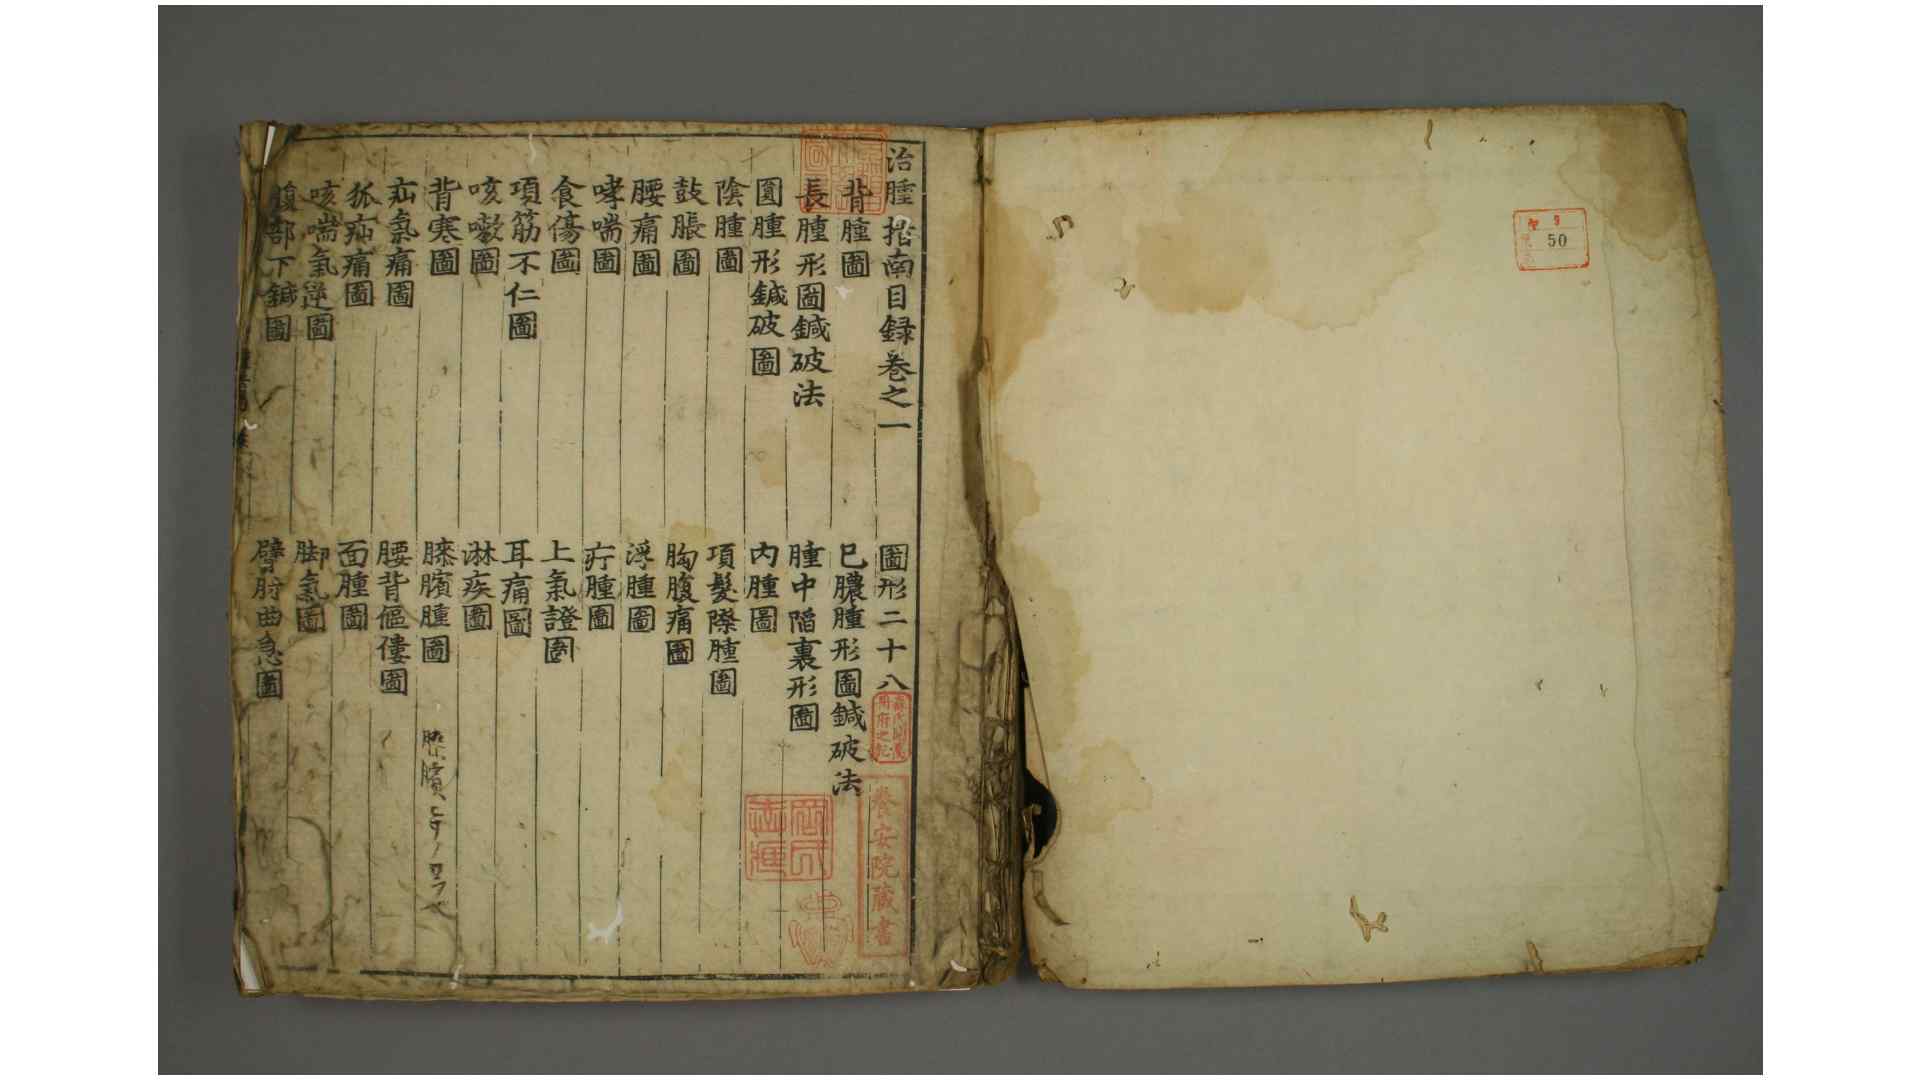 治腫指南目録卷之一
圖形二十八
背腫圖
已膿腫形圖鍼破法
長腫形圖鍼破法
腫中陷裏形圖
圓腫形鍼破圖
内腫圖
陰腫圖
項髮際腫圖
鼓脹圖
胸腹痛圖
腰痛圖
浮腫圖
哮喘圖
疔腫圖
食傷圖
上氣證圖
項筋不仁圖
耳痛圖
咳嗽圖
淋疾圖
背寒圖
膝臏腫圖
疝氣痛圖
腰背傴僂圖
狐疝痛圖
面腫圖
咳喘氣逆圖
脚氣圖
腹部下鍼圖
臂肘曲急圖
養安院藏書
50